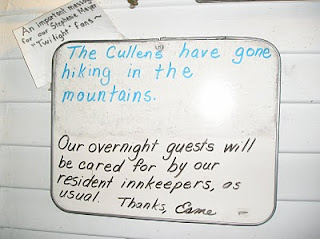 An important message
for our Stephenie Meyer
"Twilight" Fans~
The Cullens have gone
hiking in the
mountains.
Our overnight guests will
be cared for by our
resident innkeepers, as
usual. Thanks, Esme